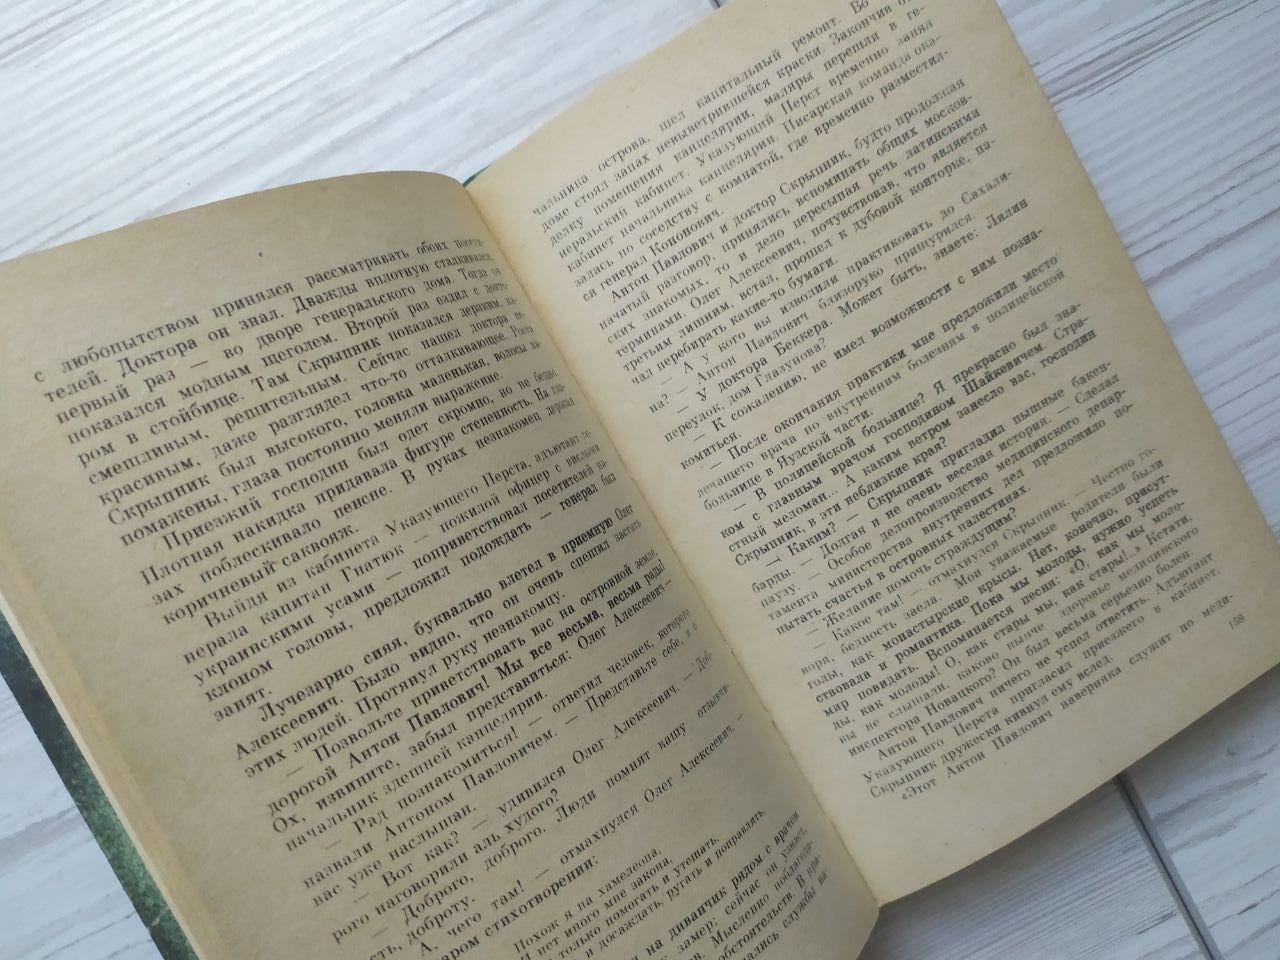 с любопытством принялся рассматривать обоих посети-
телей. Доктора он знал. Дважды вплотную сталкивался.
первый раз — во дворе генеральского дома. Тогда он
показался модным щеголем. Второй раз ездил с докто-
ром в стойбище. Там Скрыпник показался дерзким, на-
смешливым, решительным. Сейчас нашел доктора не-
красивым, даже разглядел что-то отталкивающее. Роста
Скрыпник был высокого, головка маленькая, волосы на-
помажены, глаза постоянно меняли выражение.
Приезжий господин был одет скромно, но не бедно.
Плотная накидка придавала фигуре степенность. На гла-
зах поблескивало пенсне. В руках незнакомец держал
коричневый саквояж.
Выйдя из кабинета Указующего Перста, адъютант ге-
нерала капитан Гнатюк — пожилой офицер с вислыми
украинскими усами — поприветствовал посетителей на-
клоном головы, предложил подождать — генерал был
занят.
Лучезарно сияя, буквально влетел в приемную Олег
Алексеевич. Было видно, что он очень спешил застать
этих людей. Протянул руку незнакомцу.
— Позвольте приветствовать вас на островной земле,
дорогой Антон Павлович! Мы все весьма, весьма рады!
Ох, извините, забыл представиться: Олег Алексеевич —
начальник здешней канцелярии.
— Рад познакомиться! — ответил человек, которого
назвали Антоном Павловичем. — Представьте себе, я о
вас уже наслышан.
— Вот как? — удивился Олег Алексеевич. — Доб-
рого наговорили аль худого?
— Доброго, доброго. Люди помнят вашу отзывчи-
ость, доброту.
— А, чего там! — отмахнулся Олег Алексеевич. —
аром стихотворении:
Похож я на хамелеона,
И нет иного мне закона,
только помогать и утешать,
и досаждать, ругать и поправлять.
на диванчик рядом с врачом
замер: сейчас он узнает,
Мысленно поблагода-
обстоятельств. В при-
службы на-
чальника острова, шел капитальный ремонт. Во
доме стоял запах невыветрившейся краски. Закончив от-
делку помещения канцелярии, маляры перешли в ге-
неральский кабинет. Указующий Перст временно занял
кабинет начальника канцелярии. Писарская команда ока-
залась по соседству с комнатой, где временно разместил-
ся генерал Кононович.
Антон Павлович и доктор Скрыпник, будто продолжая
начатый разговор, принялись вспоминать общих москов-
ских знакомых, то и дело пересыпая речь латинскими
терминами. Олег Алексеевич, почувствовав, что является
третьим лишним, встал, прошел к дубовой конторке, на-
чал перебирать какие-то бумаги.
— А у кого вы изволили практиковать до Сахали-
на? — Антон Павлович близоруко прищурился.
— У доктора Беккера. Может быть, знаете: Лялин
переулок, дом Глазунова?
— К сожалению, не имел возможности с ним позна-
комиться.
— После окончания практики мне предложили место
лечащего врача по внутренним болезням в полицейской
больнице в Яузской части.
— В полицейской больнице? Я прекрасно был зна-
ком с главным врачом господином Шайкевичем. Стра-
стный меломан... А каким ветром занесло вас, господин
Скрыпник, в эти неблизкие края?
— Каким? — Скрыпник пригладил пышные бакен-
барды. — Долгая и не очень веселая история. — Сделал
паузу. — Особое делопроизводство медицинского депар-
тамента министерства внутренних дел предложило по-
пытать счастья в островных палестинах.
— Желание помочь страждущим?
— Какое там! — отмахнулся Скрыпник. — Честно го-
воря, бедность заела. Мои уважаемые родители были
голы, как монастырские крысы. Нет, конечно, присут-
ствовала и романтика. Пока мы молоды, нужно успеть
мир повидать. Вспоминается песня: «О, как мы моло-
ды, как молоды! О, как стары мы, как стары!..» Кстати,
вы не слыхали, каково нынче здоровье медицинского
инспектора Новацкого? Он был весьма серьезно болен.
Антон Павлович ничего не успел ответить. Адъютант
Указующего Перста пригласил приезжего в кабинет.
Скрыпник дружески кивнул ему вслед.
«Этот Антон Павлович наверняка служит по меди-
159